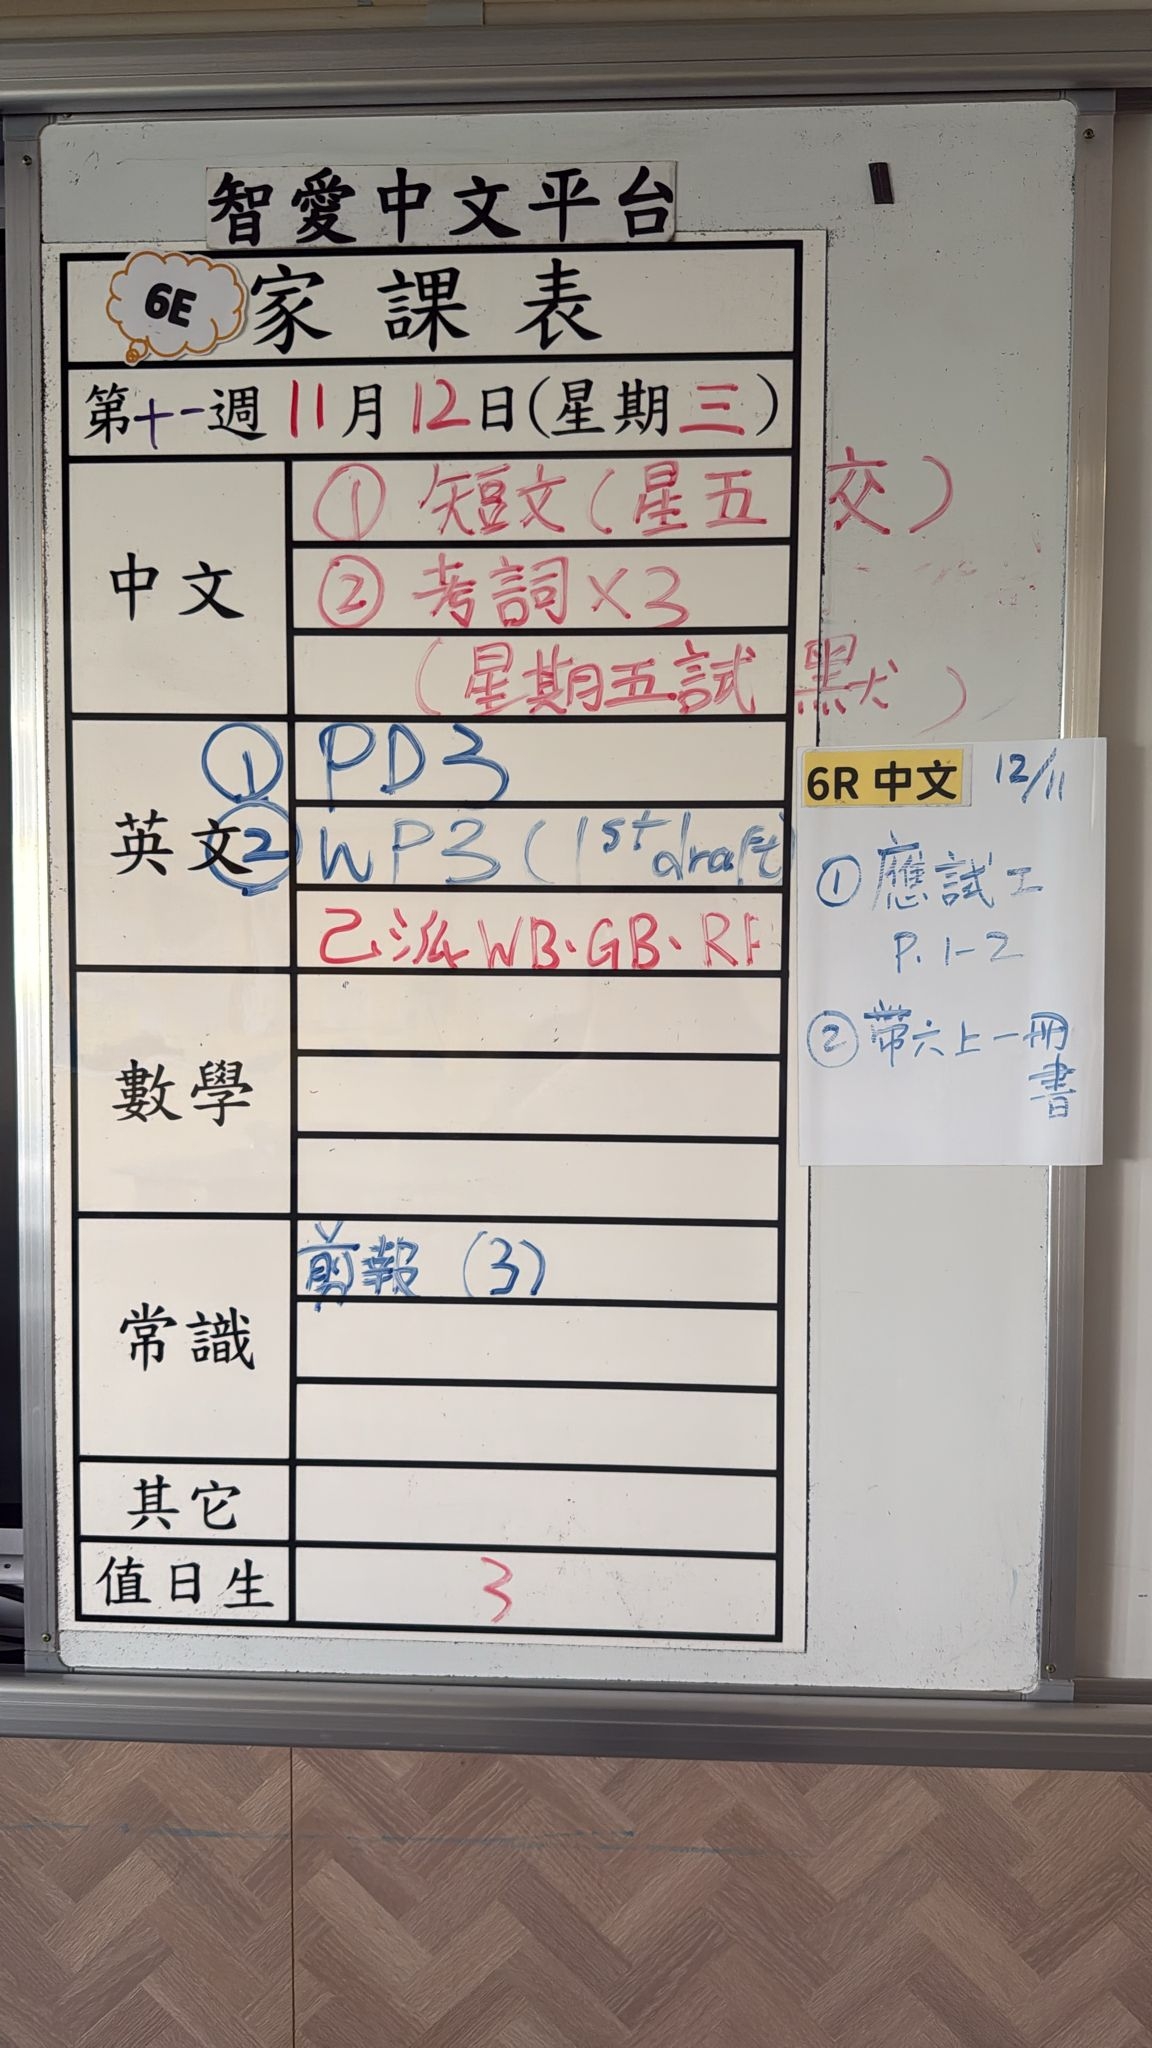 智愛中文平台
6E 家課表
第十一週 11月12日(星期三)
中文
① 短文(星五交)
② 考詞×3
(星期五試默)
英文
① PD3
② WP3 (1st draft
已派 WB、GB、RF
數學
常識
剪報 (3)
其它
值日生
3
6R 中文 12/11
① 應試工
P. 1-2
② 帶六上一冊
書